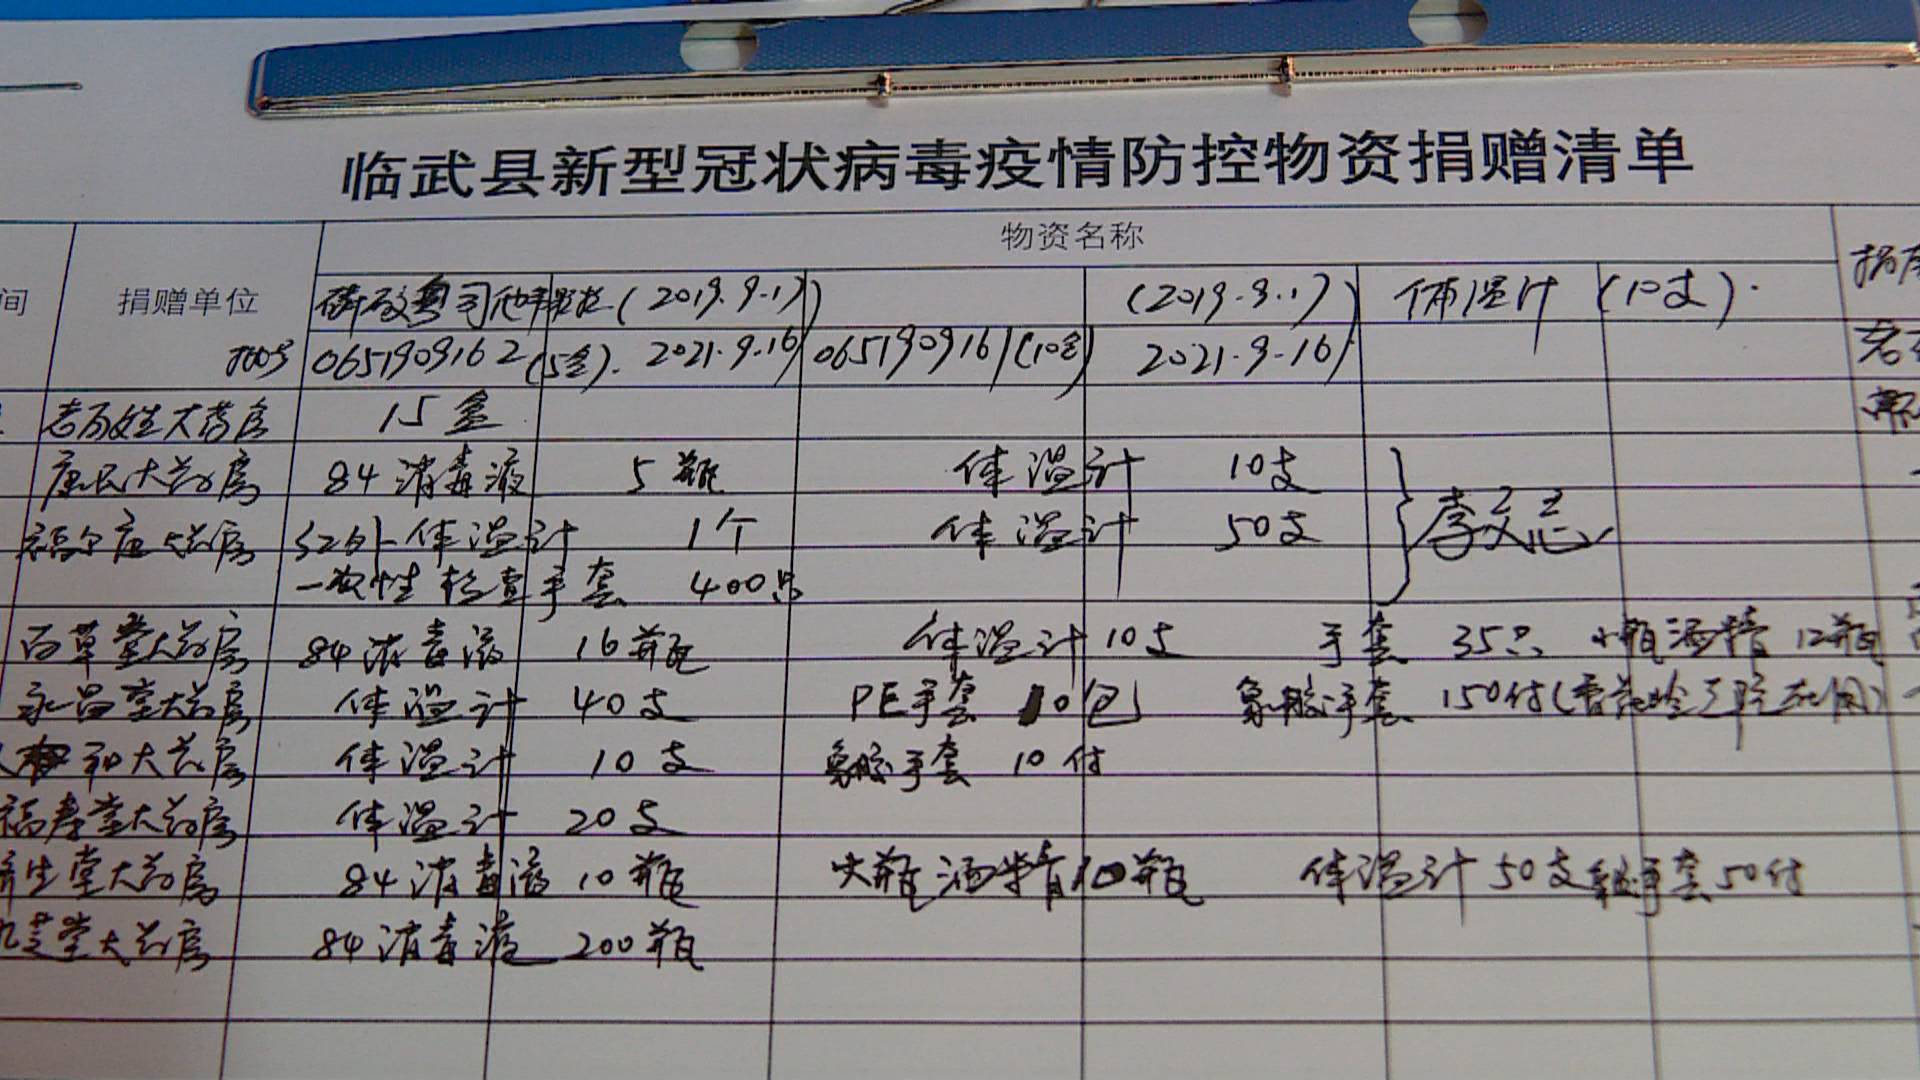 临武县新型冠状病毒疫情防控物资捐赠清单
物资名称
间 捐赠单位 磷酸奥司他韦颗粒(2019.9.17) (2019.9.17) 体温计 (10支).
0651909162(5盒). 2021.9.16 0651909161(10盒) 2021.9.16
老百姓大药房 15盒
康民大药房 84消毒液 5瓶 体温计 10支
福尔康大药房 红外体温计 1个 体温计 50支 李文忠
一次性检查手套 400只
百草堂大药房 84消毒液 16瓶 体温计 10支 手套 35只 小瓶酒精 12瓶
永昌堂大药房 体温计 40支 PE手套 10包 橡胶手套 150付
和大药房 体温计 10支 橡胶手套 10付
福寿堂大药房 体温计 20支
济生堂大药房 84消毒液 10瓶 大瓶酒精10瓶 体温计50支 橡胶手套50付
九芝堂大药房 84消毒液 200瓶